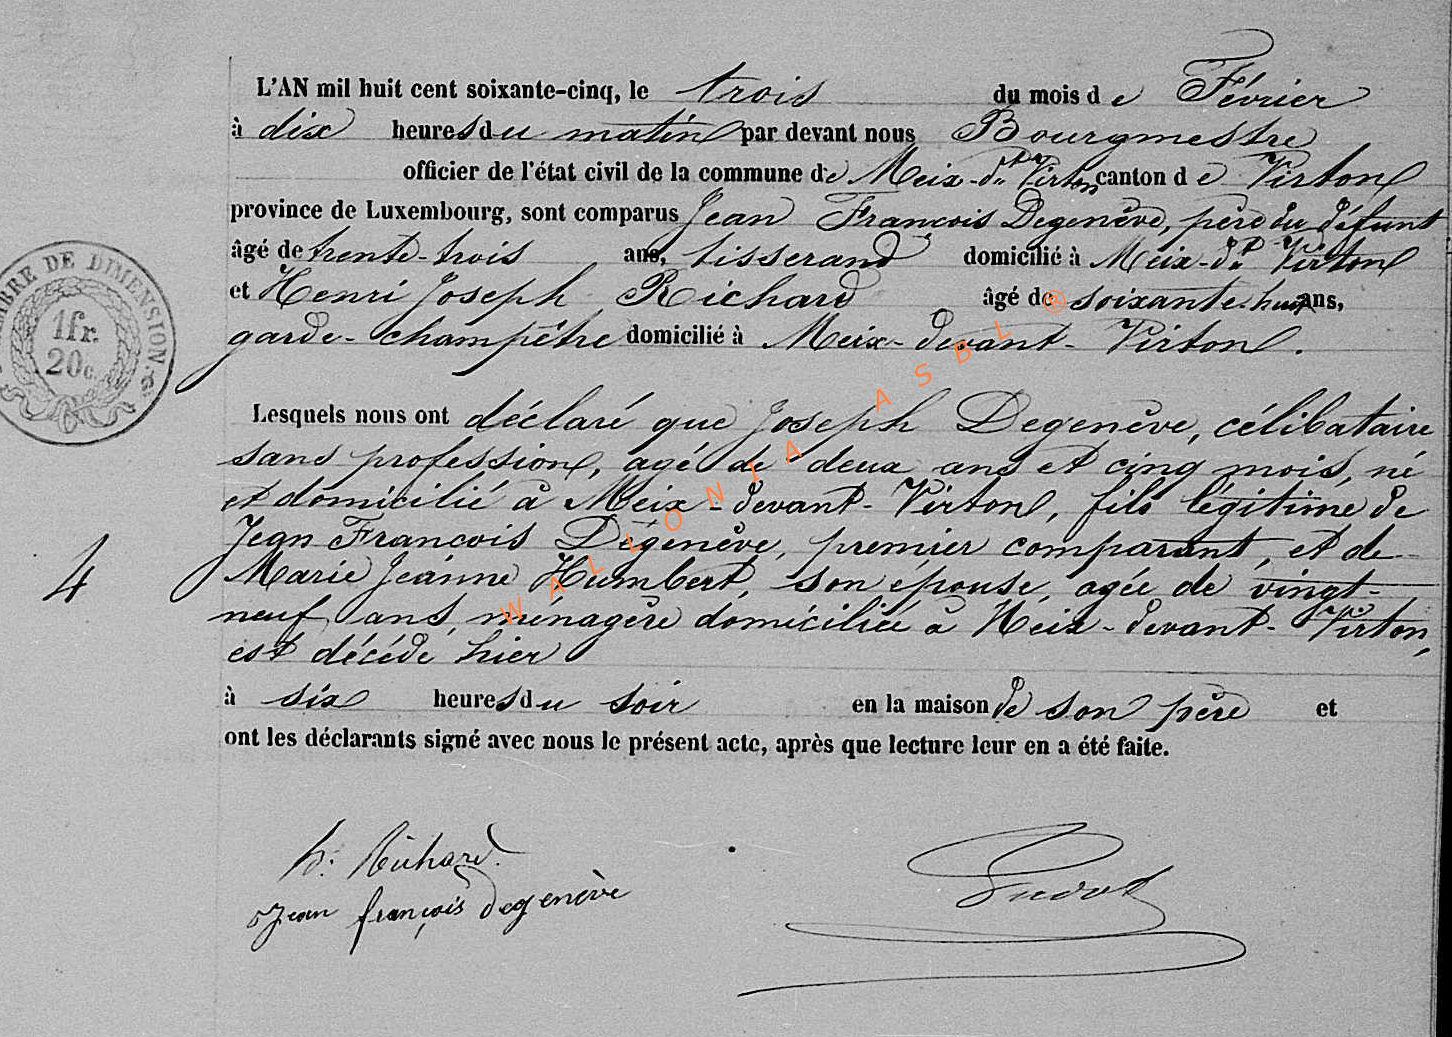 L'AN mil huit cent soixante-cinq, le trois du mois de Février
à dix heures du matin par devant nous Bourgmestre
officier de l'état civil de la commune de Meix-dt Virton canton de Virton
province de Luxembourg, sont comparus Jean François Degenève, père du défunt
âgé de trente-trois ans, tisserand domicilié à Meix-dt Virton
et Henri Joseph Richard âgé de soixante-huit ans,
garde-champêtre domicilié à Meix-devant-Virton.
Lesquels nous ont déclaré que Joseph Degenève, célibataire
sans profession, agé de deux ans et cinq mois, né
et domicilié à Meix-devant-Virton, fils légitime de
Jean François Degenève, premier comparant, et de
Marie Jeanne Humbert, son épouse, agée de vingt-
neuf ans, ménagère domiciliée à Meix-devant-Virton,
est décédé hier
à six heures du soir en la maison de son père et
ont les déclarants signé avec nous le présent acte, après que lecture leur en a été faite.
h. Richard
Jean françois degenève
4
DE DIMENSION
1 fr.
20 c.
WALLONIA ASBL ®